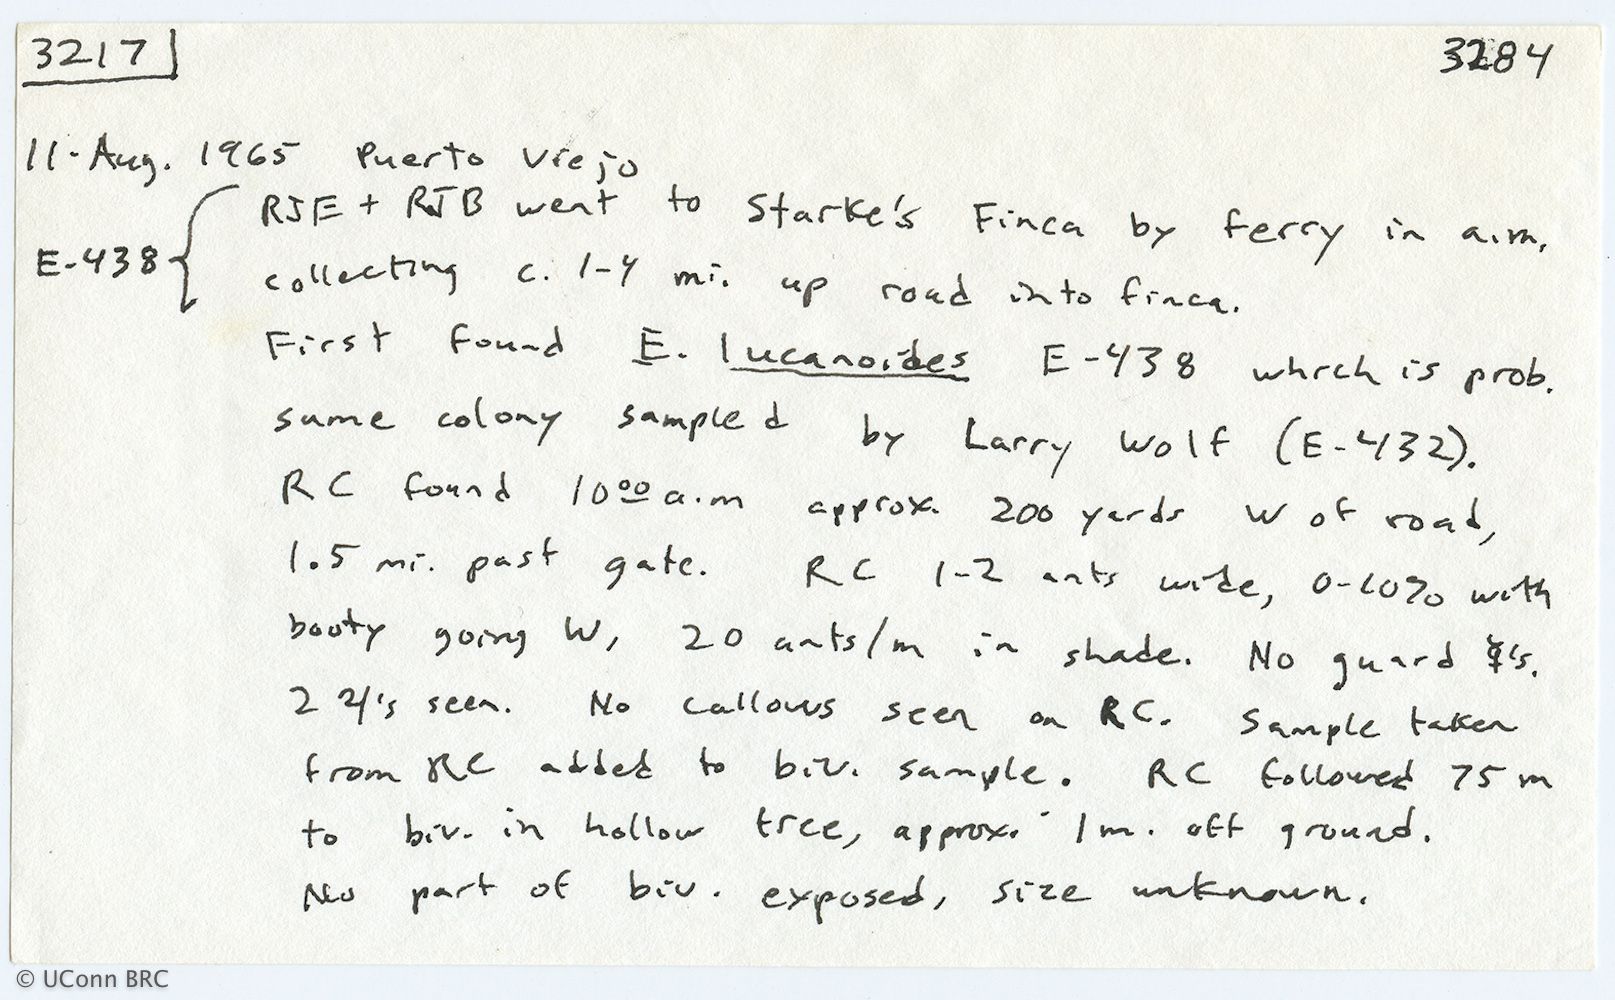 3217 3284
11-Aug. 1965 Puerto Viejo
RJE + RJB went to Starke's Finca by ferry in a.m.
E-438 { collecting c. 1-4 mi. up road into finca.
First found E. lucanoides E-438 which is prob.
same colony sampled by Larry Wolf (E-432).
RC found 10⁰⁰ a.m approx. 200 yards W of road,
1.5 mi. past gate. RC 1-2 ants wide, 0-10% with
booty going W, 20 ants/m in shade. No guard ☿'s.
2 ♃'s seen. No callows seen on RC. Sample taken
from RC added to biv. sample. RC followed 75 m
to biv. in hollow tree, approx. 1m. off ground.
No part of biv. exposed, size unknown.
© UConn BRC